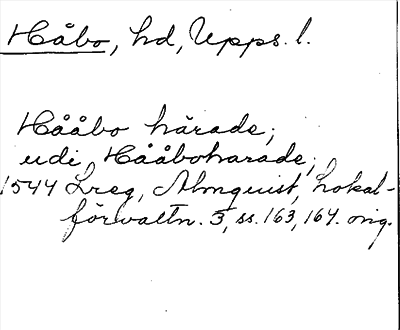 Håbo, hd, Upps. l.
Hååbo härade;
udi Hååboharade;
1544 Lreg, Almquist, Lokal-
förvaltn. 3, ss. 163, 164. orig.